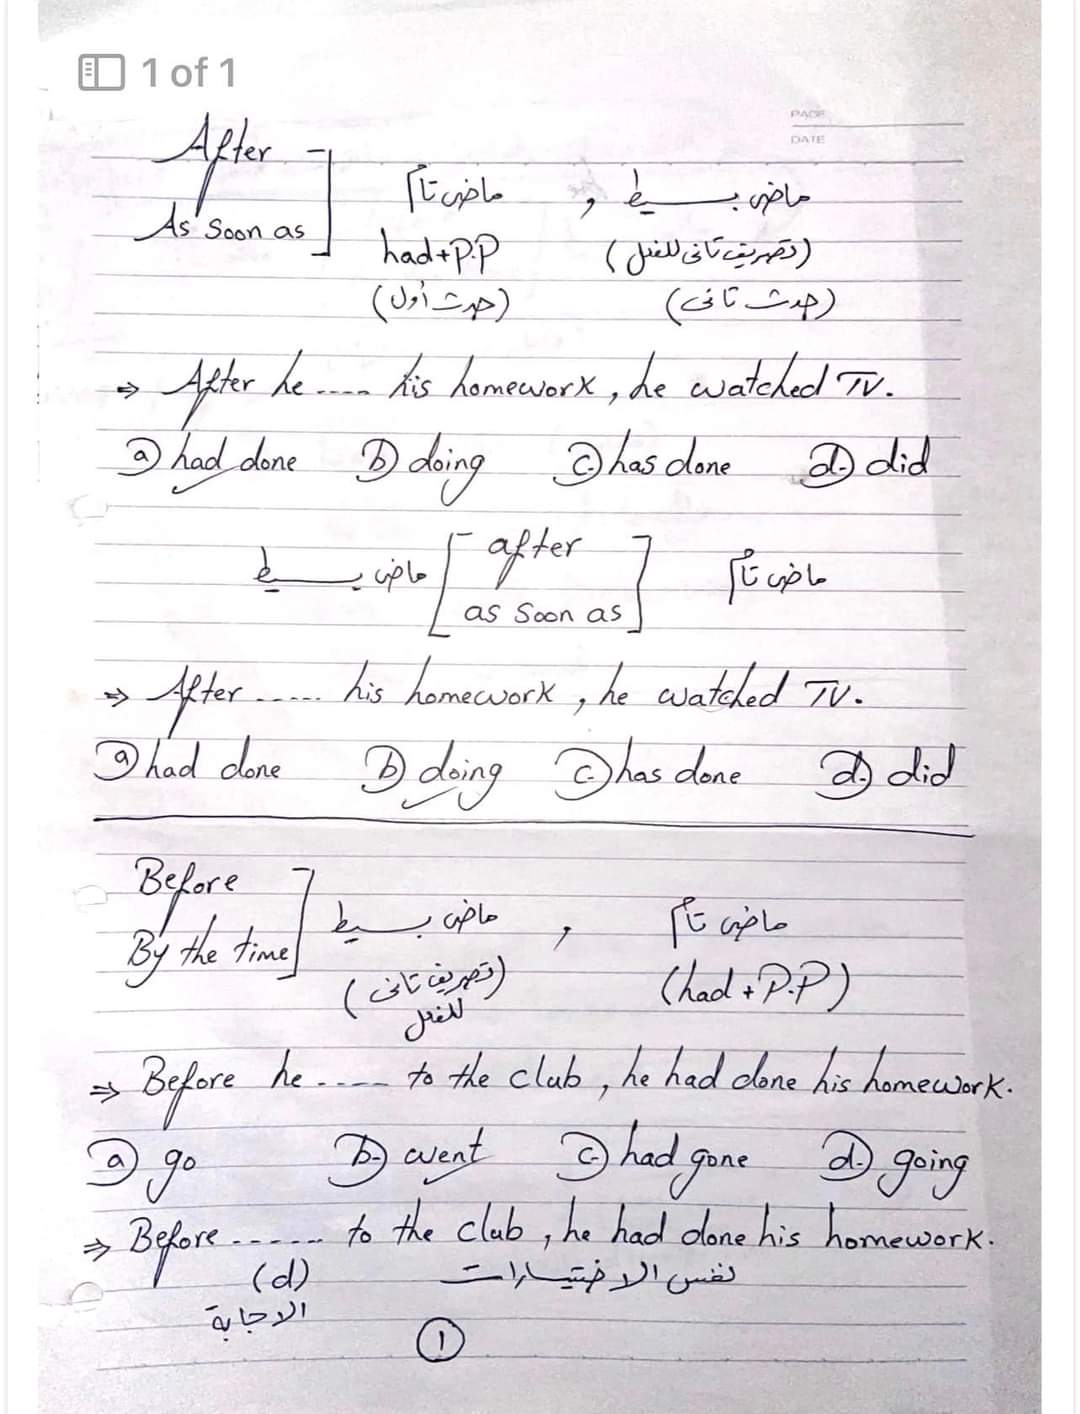 1 of 1
PAGE
DATE
After
As soon as
ماضى تام , ماضى بسيط
had+P.P (تصريف تانى للفعل)
(حدث أول) (حدث تانى)
⇒ After he .... his homework, he watched TV.
a) had done b) doing c) has done d) did
ماضى بسيط [after] ماضى تام
as soon as
⇒ After ...... his homework, he watched TV.
a) had done b) doing c) has done d) did
Before
By the time
ماضى بسيط , ماضى تام
(تصريف تانى للفعل) (had + P.P)
⇒ Before he .... to the club, he had done his homework.
a) go b) went c) had gone d) going
⇒ Before ...... to the club, he had done his homework.
(d) نفس الاختيارات
الاجابة
1